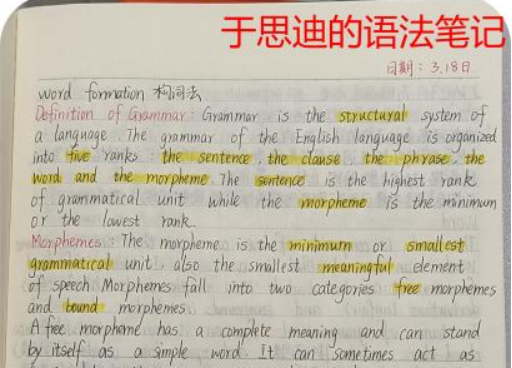 于思迪的语法笔记
日期：3.18日
word formation 构词法
Definition of Grammar: Grammar is the structural system of
a language. The grammar of the English language is organized
into five ranks: the sentence, the clause, the phrase, the
word and the morpheme. The sentence is the highest rank
of grammatical unit while the morpheme is the minimum
or the lowest rank.
Morphemes: The morpheme is the minimum or smallest
grammatical unit, also the smallest meaningful element
of speech Morphemes fall into two categories: free morphemes
and bound morphemes.
A free morpheme has a complete meaning and can stand
by itself as a simple word. It can sometimes act as